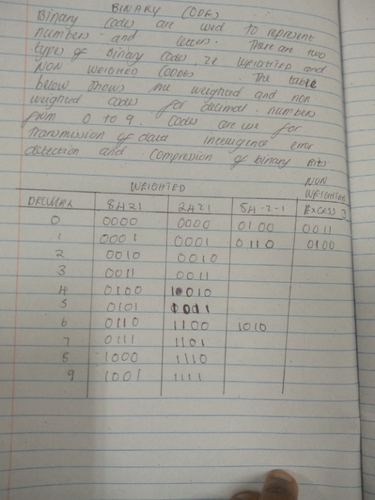 BINARY CODES
Binary codes are used to represent
numbers and letters. There are two
types of Binary codes ie WEIGHTED and
NON WEIGHTED CODES. The table
below shows the weighted and non
weighted codes for decimal numbers
from 0 to 9. Codes are use for
transmission of data error
detection and compression of binary bits
WEIGHTED NON WEIGHTED
DECIMAL 8421 2421 84-2-1 EXCESS 3
0 0000 0000 0100 0011
1 0001 0001 0110 0100
2 0010 0010
3 0011 0011
4 0100 10010
5 0101
6 0110 1100 1010
7 0111 1101
8 1000 1110
9 1001 1111